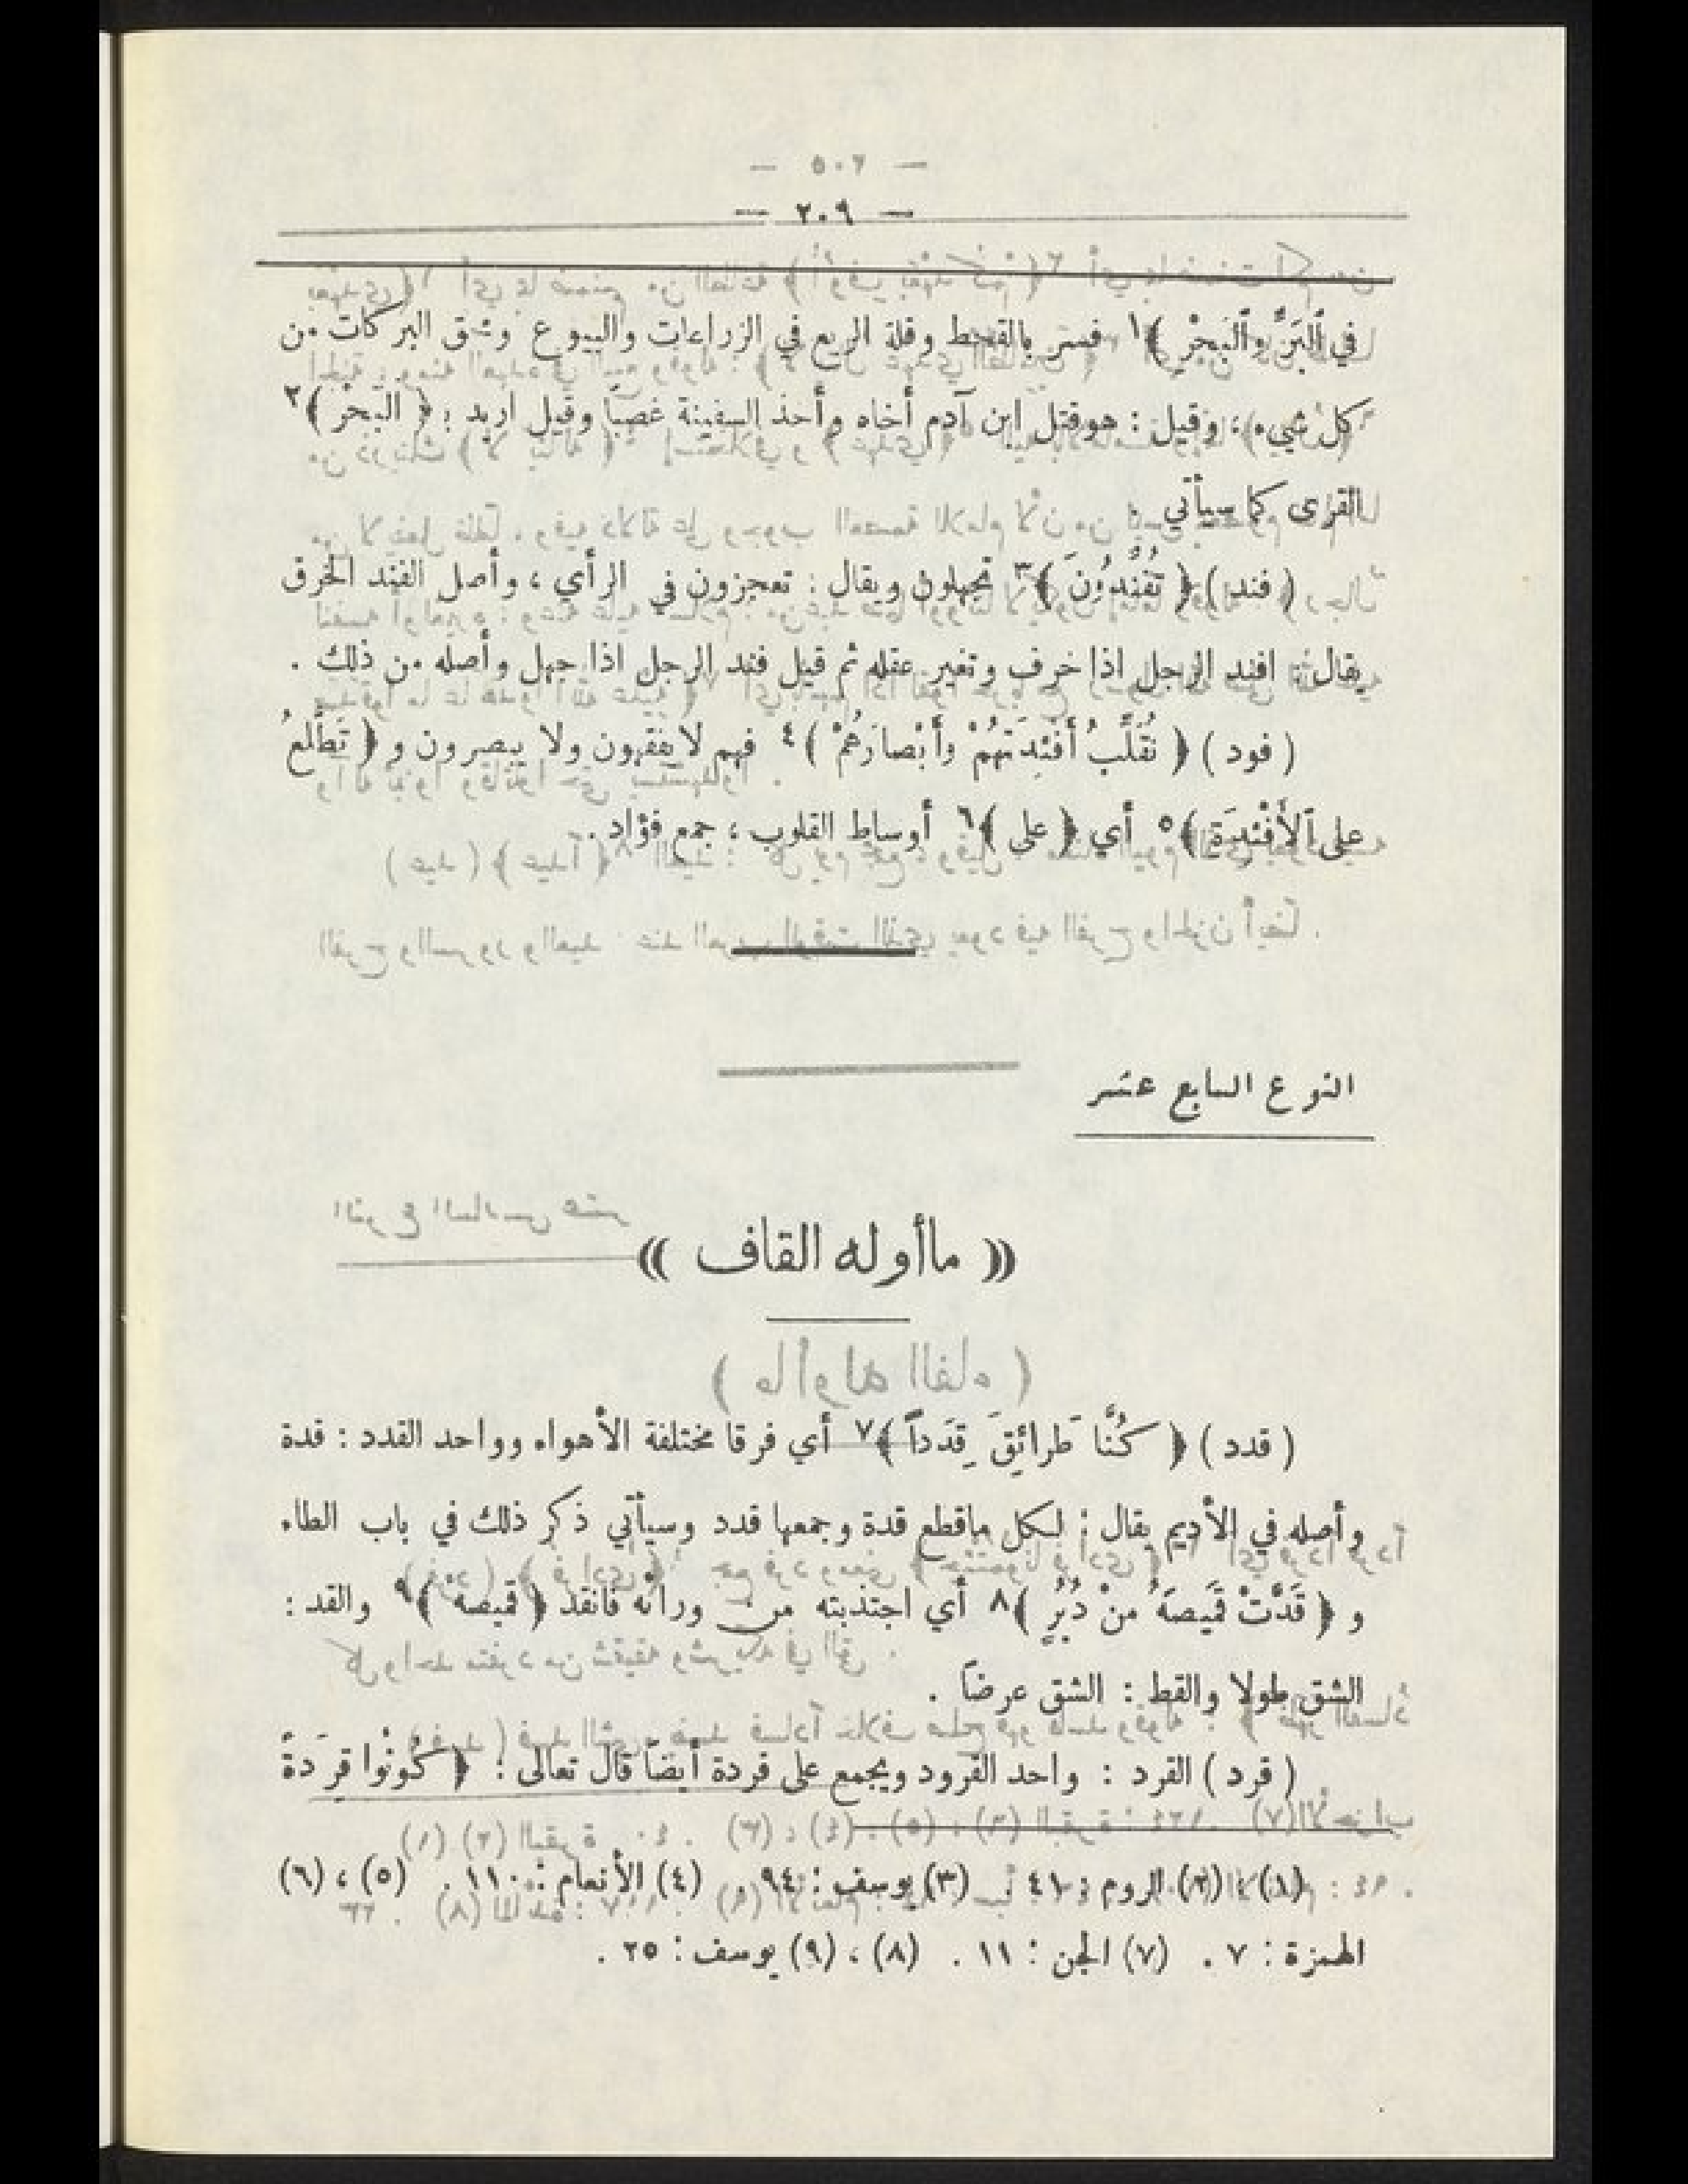 — ٢٠٩ —
في ٱلْبَرِّ وٱلْبَحْرِ ﴾١ فسر بالقحط وقلة الريع في الزراعات والبيوع ومحق البركات من
كل شيء ، وقيل : هو قتل ابن آدم أخاه وأخذ السفينة غصباً وقيل اريد بـ ﴿ الْبَحْرِ ﴾٢
القرى كما سيأتي .
( فند ) ﴿ تُفَنِّدُونَ ﴾٣ تجهلون ويقال : تعجزون في الرأي ، وأصل الفند الخرف
يقال : افند الرجل اذا خرف وتغير عقله ثم قيل فند الرجل اذا جهل وأصله من ذلك .
( فود ) ﴿ نُقَلِّبُ أَفْئِدَتَهُمْ وأَبْصارَهُمْ ﴾٤ فهم لا يفقهون ولا يبصرون و ﴿ تَطَّلِعُ
على ٱلأَفْئِدَةِ ﴾٥ أي ﴿ على ﴾٦ أوساط القلوب ، جمع فؤاد .
النوع السابع عشر
« ماأوله القاف »
( قدد ) ﴿ كُنَّا طَرائِقَ قِدَداً ﴾٧ أي فرقا مختلفة الأهواء وواحد القدد : قدة
وأصله في الأديم يقال : لكل ماقطع قدة وجمعها قدد وسيأتي ذكر ذلك في باب الطاء
و ﴿ قَدَّتْ قَمِيصَهُ مِنْ دُبُرٍ ﴾٨ أي اجتذبته من ورائه فانقد ﴿ قميصه ﴾٩ والقد :
الشق طولا والقط : الشق عرضاً .
( قرد ) القرد : واحد القرود ويجمع على قردة أيضاً قال تعالى : ﴿ كُونُوا قِرَدةً
(١) ، (٢) الروم : ٤١ . (٣) يوسف : ٩٤ . (٤) الأنعام : ١١٠ . (٥) ، (٦)
الهمزة : ٧ . (٧) الجن : ١١ . (٨) ، (٩) يوسف : ٢٥ .